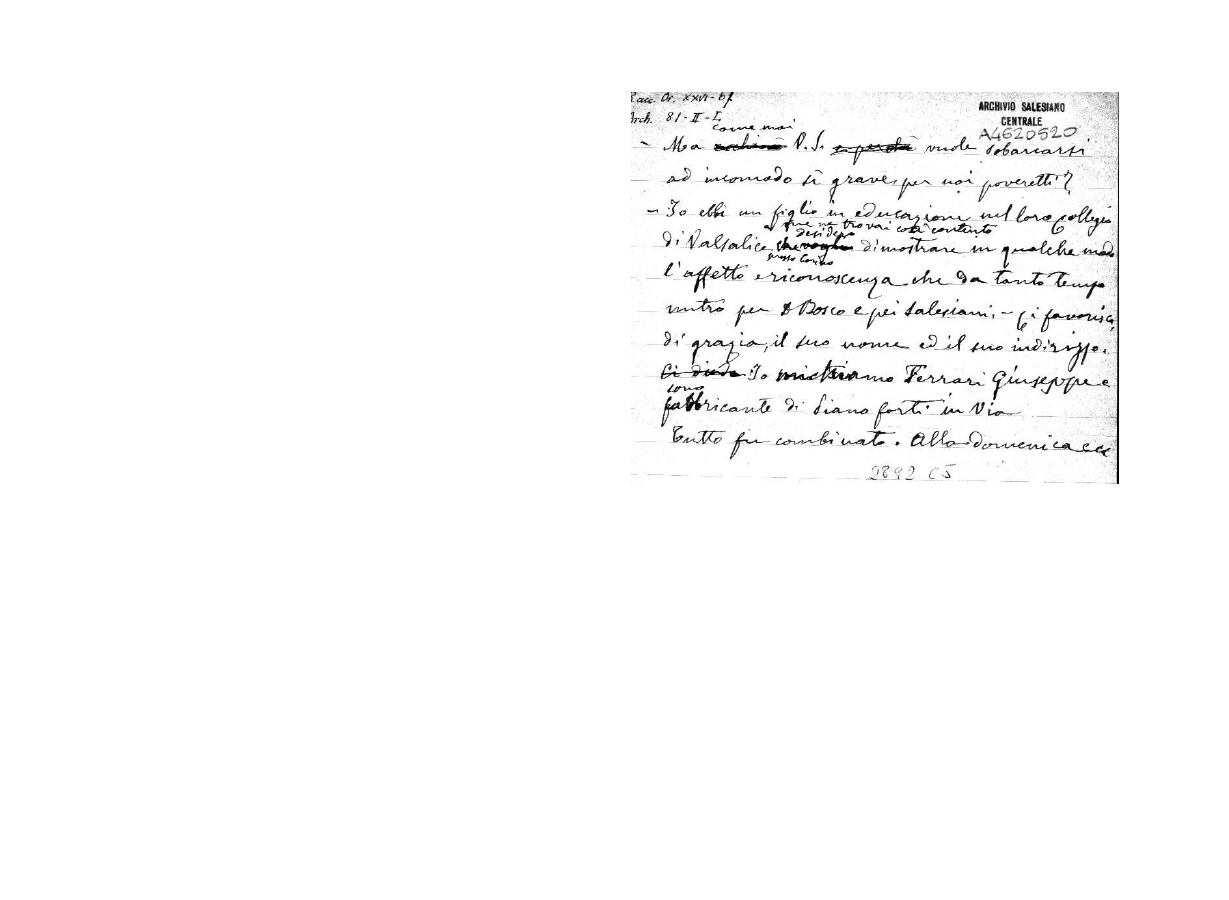 Racc. Or. XXVI-bf
Arch. 81-II-I
ARCHIVIO SALESIANO
CENTRALE
A4620520
come mai
- Ma V. S. vuole sobarcarsi
ad incomodo sì grave per noi poveretti?
- Io ebbi un figlio in educazione nel loro collegio
e me ne trovai così contento
desidero
di Valsalice che voglio dimostrare in qualche modo
presso Torino
l'affetto e riconoscenza che da tanto tempo
nutro per D Bosco e pei Salesiani. - Ci favorisca,
di grazia, il suo nome ed il suo indirizzo.
Ci diede Io mi chiamo Ferrari Giuseppe e
sono
fabbricante di Piano forti in Via
Tutto fu combinato. Alla domenica ecc
2892 C5